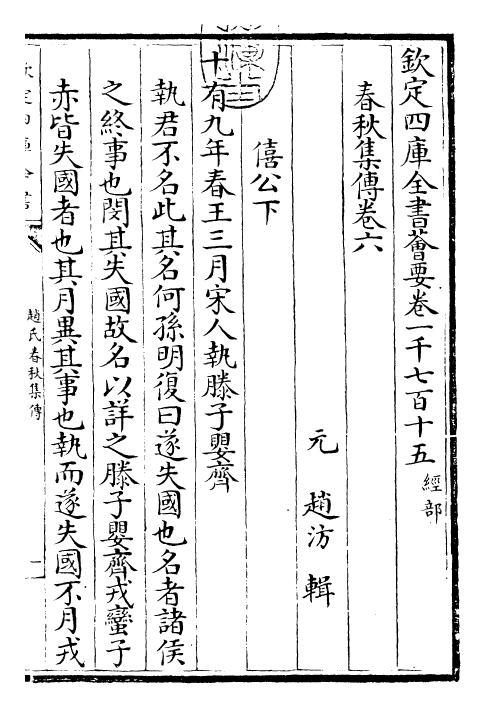 欽定四庫全書薈要卷一千七百十五 經部
春秋集傳卷六
元 趙汸 輯
僖公下
十有九年春王三月宋人執滕子嬰齊
執君不名此其名何孫明復曰遂失國也名者諸侯
之終事也閔其失國故名以詳之滕子嬰齊戎蠻子
赤皆失國者也其月異其事也執而遂失國不月戎
趙氏春秋集傳
一